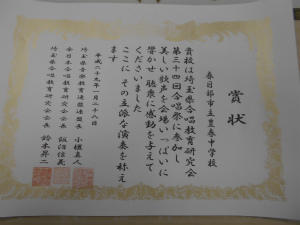 賞状
春日部市立豊春中学校
貴校は埼玉県合唱教育研究会
第三十四回合唱祭に参加し
美しい歌声を会場いっぱいに
響かせ 聴衆に感動を与えて
くださいました
ここに その立派な演奏を称え
ます
平成二十九年一月二十八日
埼玉県合唱教育研究会会長
全日本合唱教育研究会会長
鈴木昇二